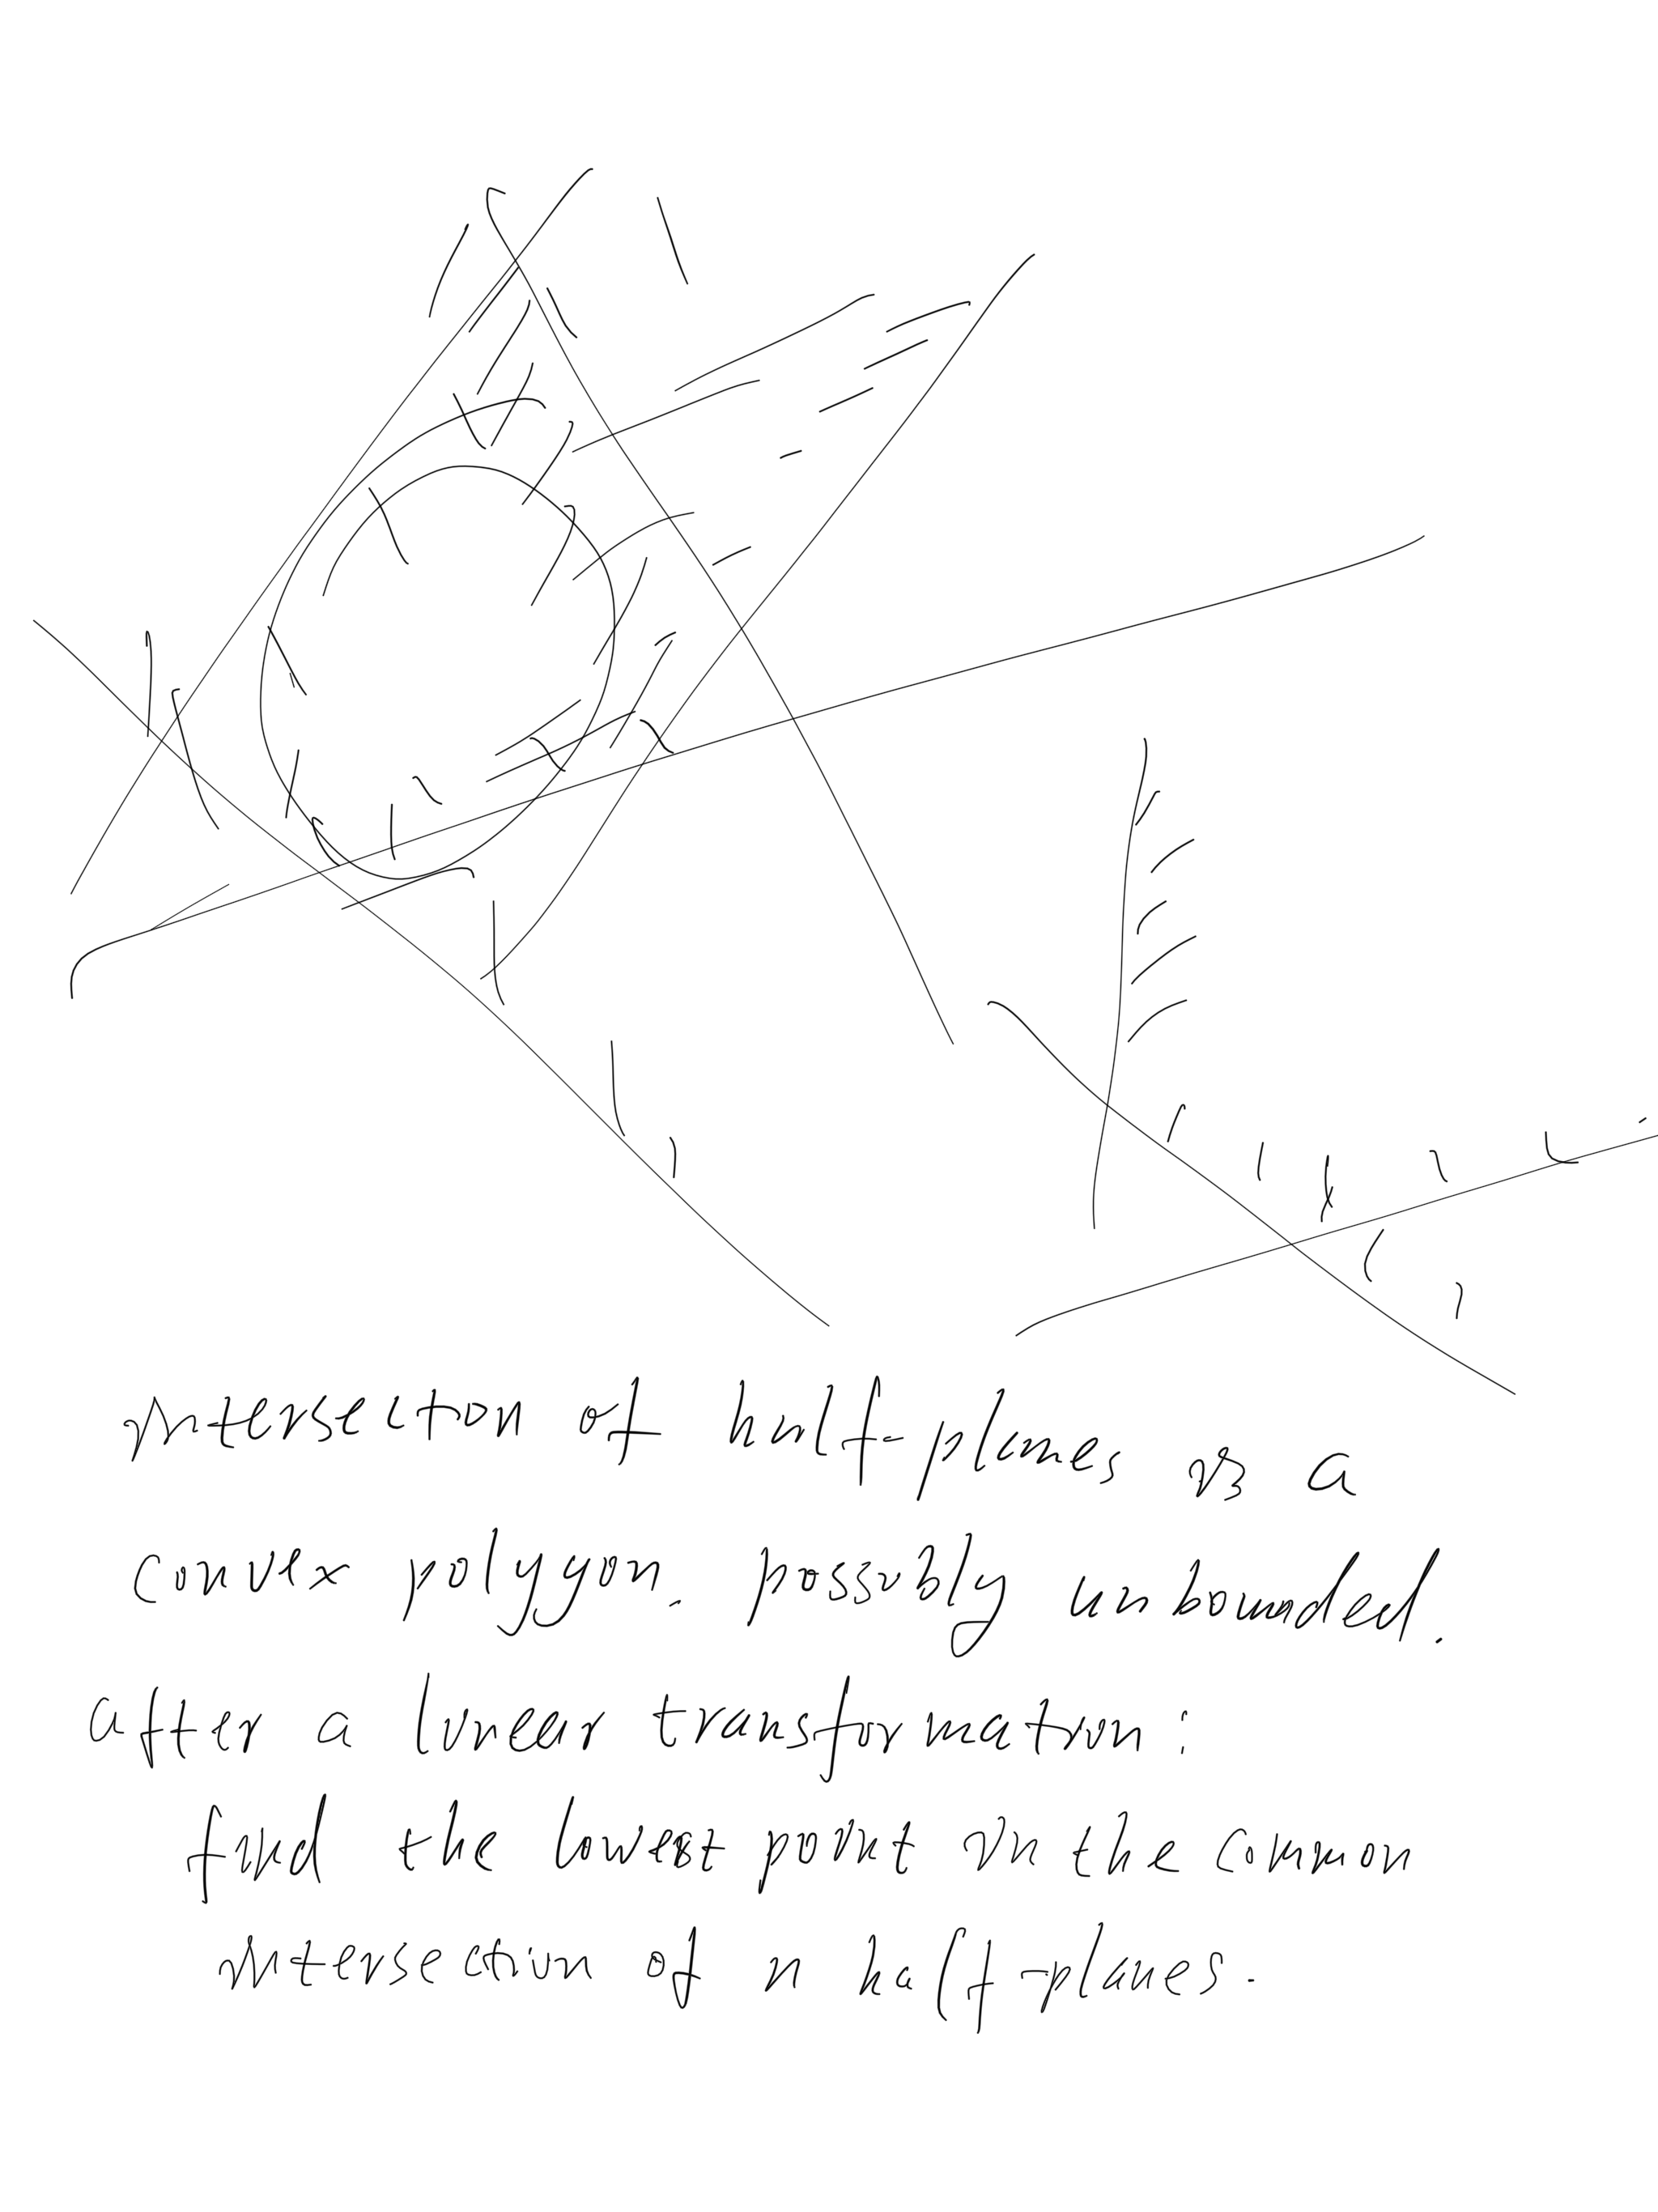 intersection of half-planes is a
convex polygon. possibly unbounded.
after a linear transformation:
find the lowest point in the common
intersection of n half-planes.